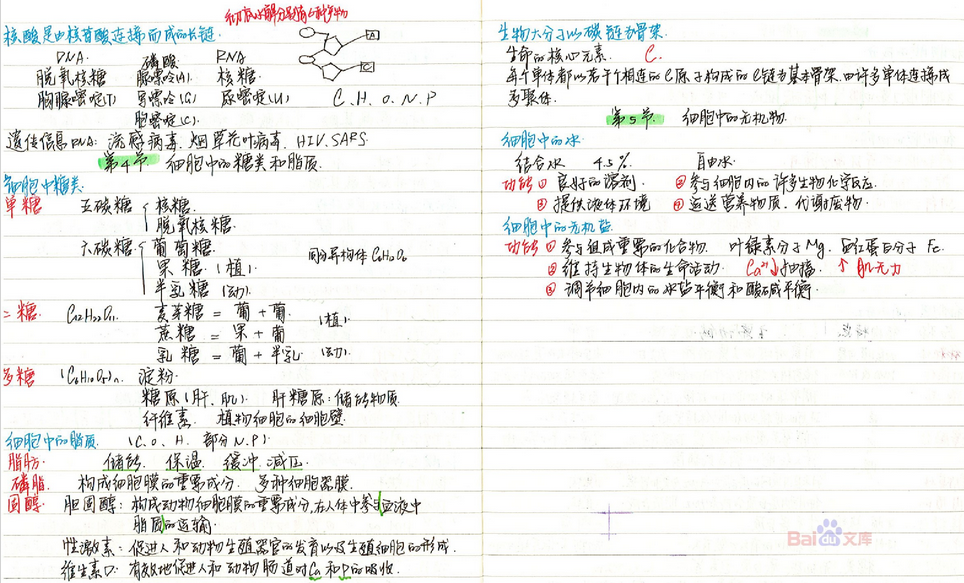 彻底水解分别有6种产物
核酸是由核苷酸连接而成的长链.
DNA. 磷酸 RNA
脱氧核糖 腺嘌呤(A). 核糖
胸腺嘧啶(T) 鸟嘌呤(G) 尿嘧啶(U) C.H.O.N.P
胞嘧啶(C).
A
C
遗传信息RNA: 流感病毒, 烟草花叶病毒, HIV. SARS.
第4节. 细胞中的糖类和脂质.
细胞中糖类.
单糖 五碳糖 核糖
脱氧核糖.
六碳糖 葡萄糖.
果糖. (植). 同分异构体
半乳糖 (动).
二糖. C12H22O11. 麦芽糖 = 葡+葡.
蔗糖 = 果+葡 (植)
乳糖 = 葡+半乳. (动).
多糖 (C6H10O5)n. 淀粉.
糖原(肝、肌). 肝糖原:储能物质.
纤维素. 植物细胞的细胞壁.
细胞中的脂质. (C.O.H. 部分N.P).
脂肪. 储能. 保温. 缓冲. 减压.
磷脂. 构成细胞膜的重要成分. 多种细胞器膜.
固醇 胆固醇: 构成动物细胞膜的重要成分,在人体中参与血液中
脂质的运输.
性激素: 促进人和动物生殖器官的发育以及生殖细胞的形成.
维生素D: 有效地促进人和动物肠道对Ca和P的吸收.
生物大分子以碳链为骨架.
生命的核心元素. C.
每个单体都以若干个相连的C原子构成的C链为基本骨架.由许多单体连接成
多聚体.
第5节. 细胞中的无机物.
细胞中的水
结合水 4.5%. 自由水.
功能① 良好的溶剂. ②参与细胞内的许多生物化学反应.
③ 提供液体环境 ④ 运送营养物质、代谢废物.
细胞中的无机盐.
功能① 参与组成重要的化合物. 叶绿素分子Mg. 血红蛋白分子Fe.
② 维持生物体的生命活动. Ca²⁺↓抽搐. ↑肌无力
③ 调节细胞内的水盐平衡和酸碱平衡.
Baidu文库